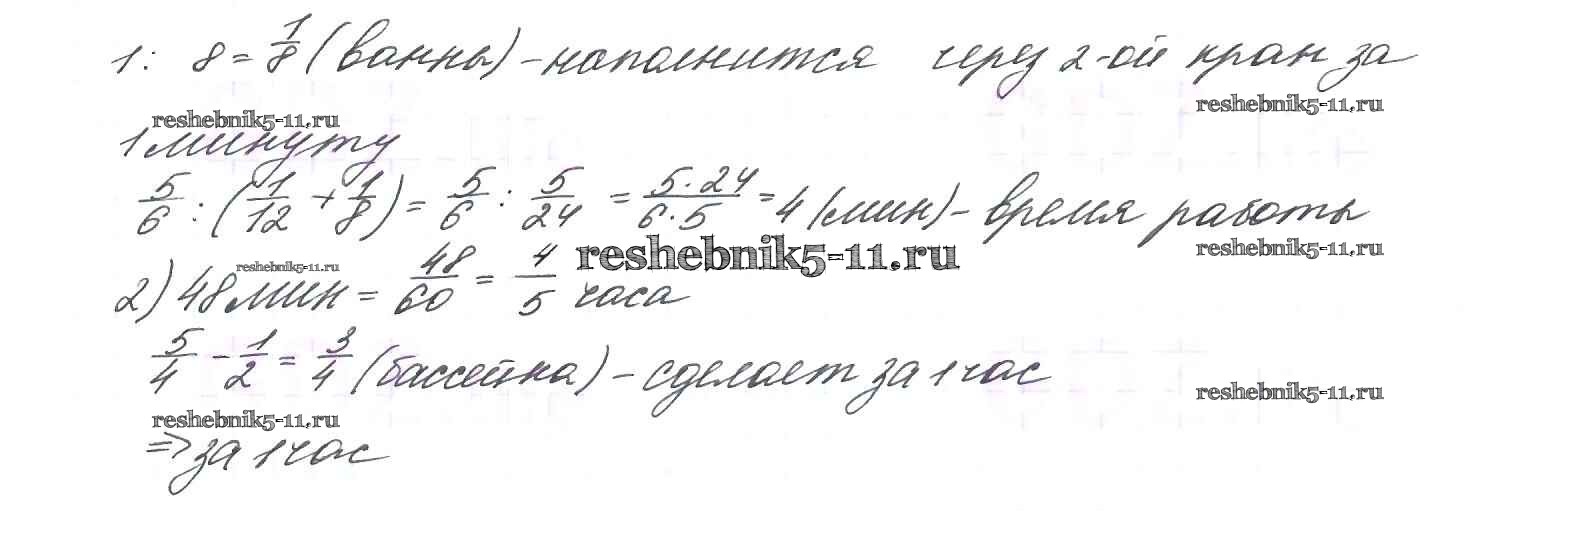 1: 8 = 1/8 (ванны) – наполнится через 2-ой кран за
reshebnik5-11.ru
reshebnik5-11.ru
1 минуту
5/6 : (1/12 + 1/8) = 5/6 : 5/24 = 5·24/6·5 = 4 (мин) – время работы
reshebnik5-11.ru
reshebnik5-11.ru
reshebnik5-11.ru
2) 48 мин = 48/60 = 4/5 часа
5/4 – 1/2 = 3/4 (бассейна) – сделает за 1 час
reshebnik5-11.ru
reshebnik5-11.ru
=> за 1 час